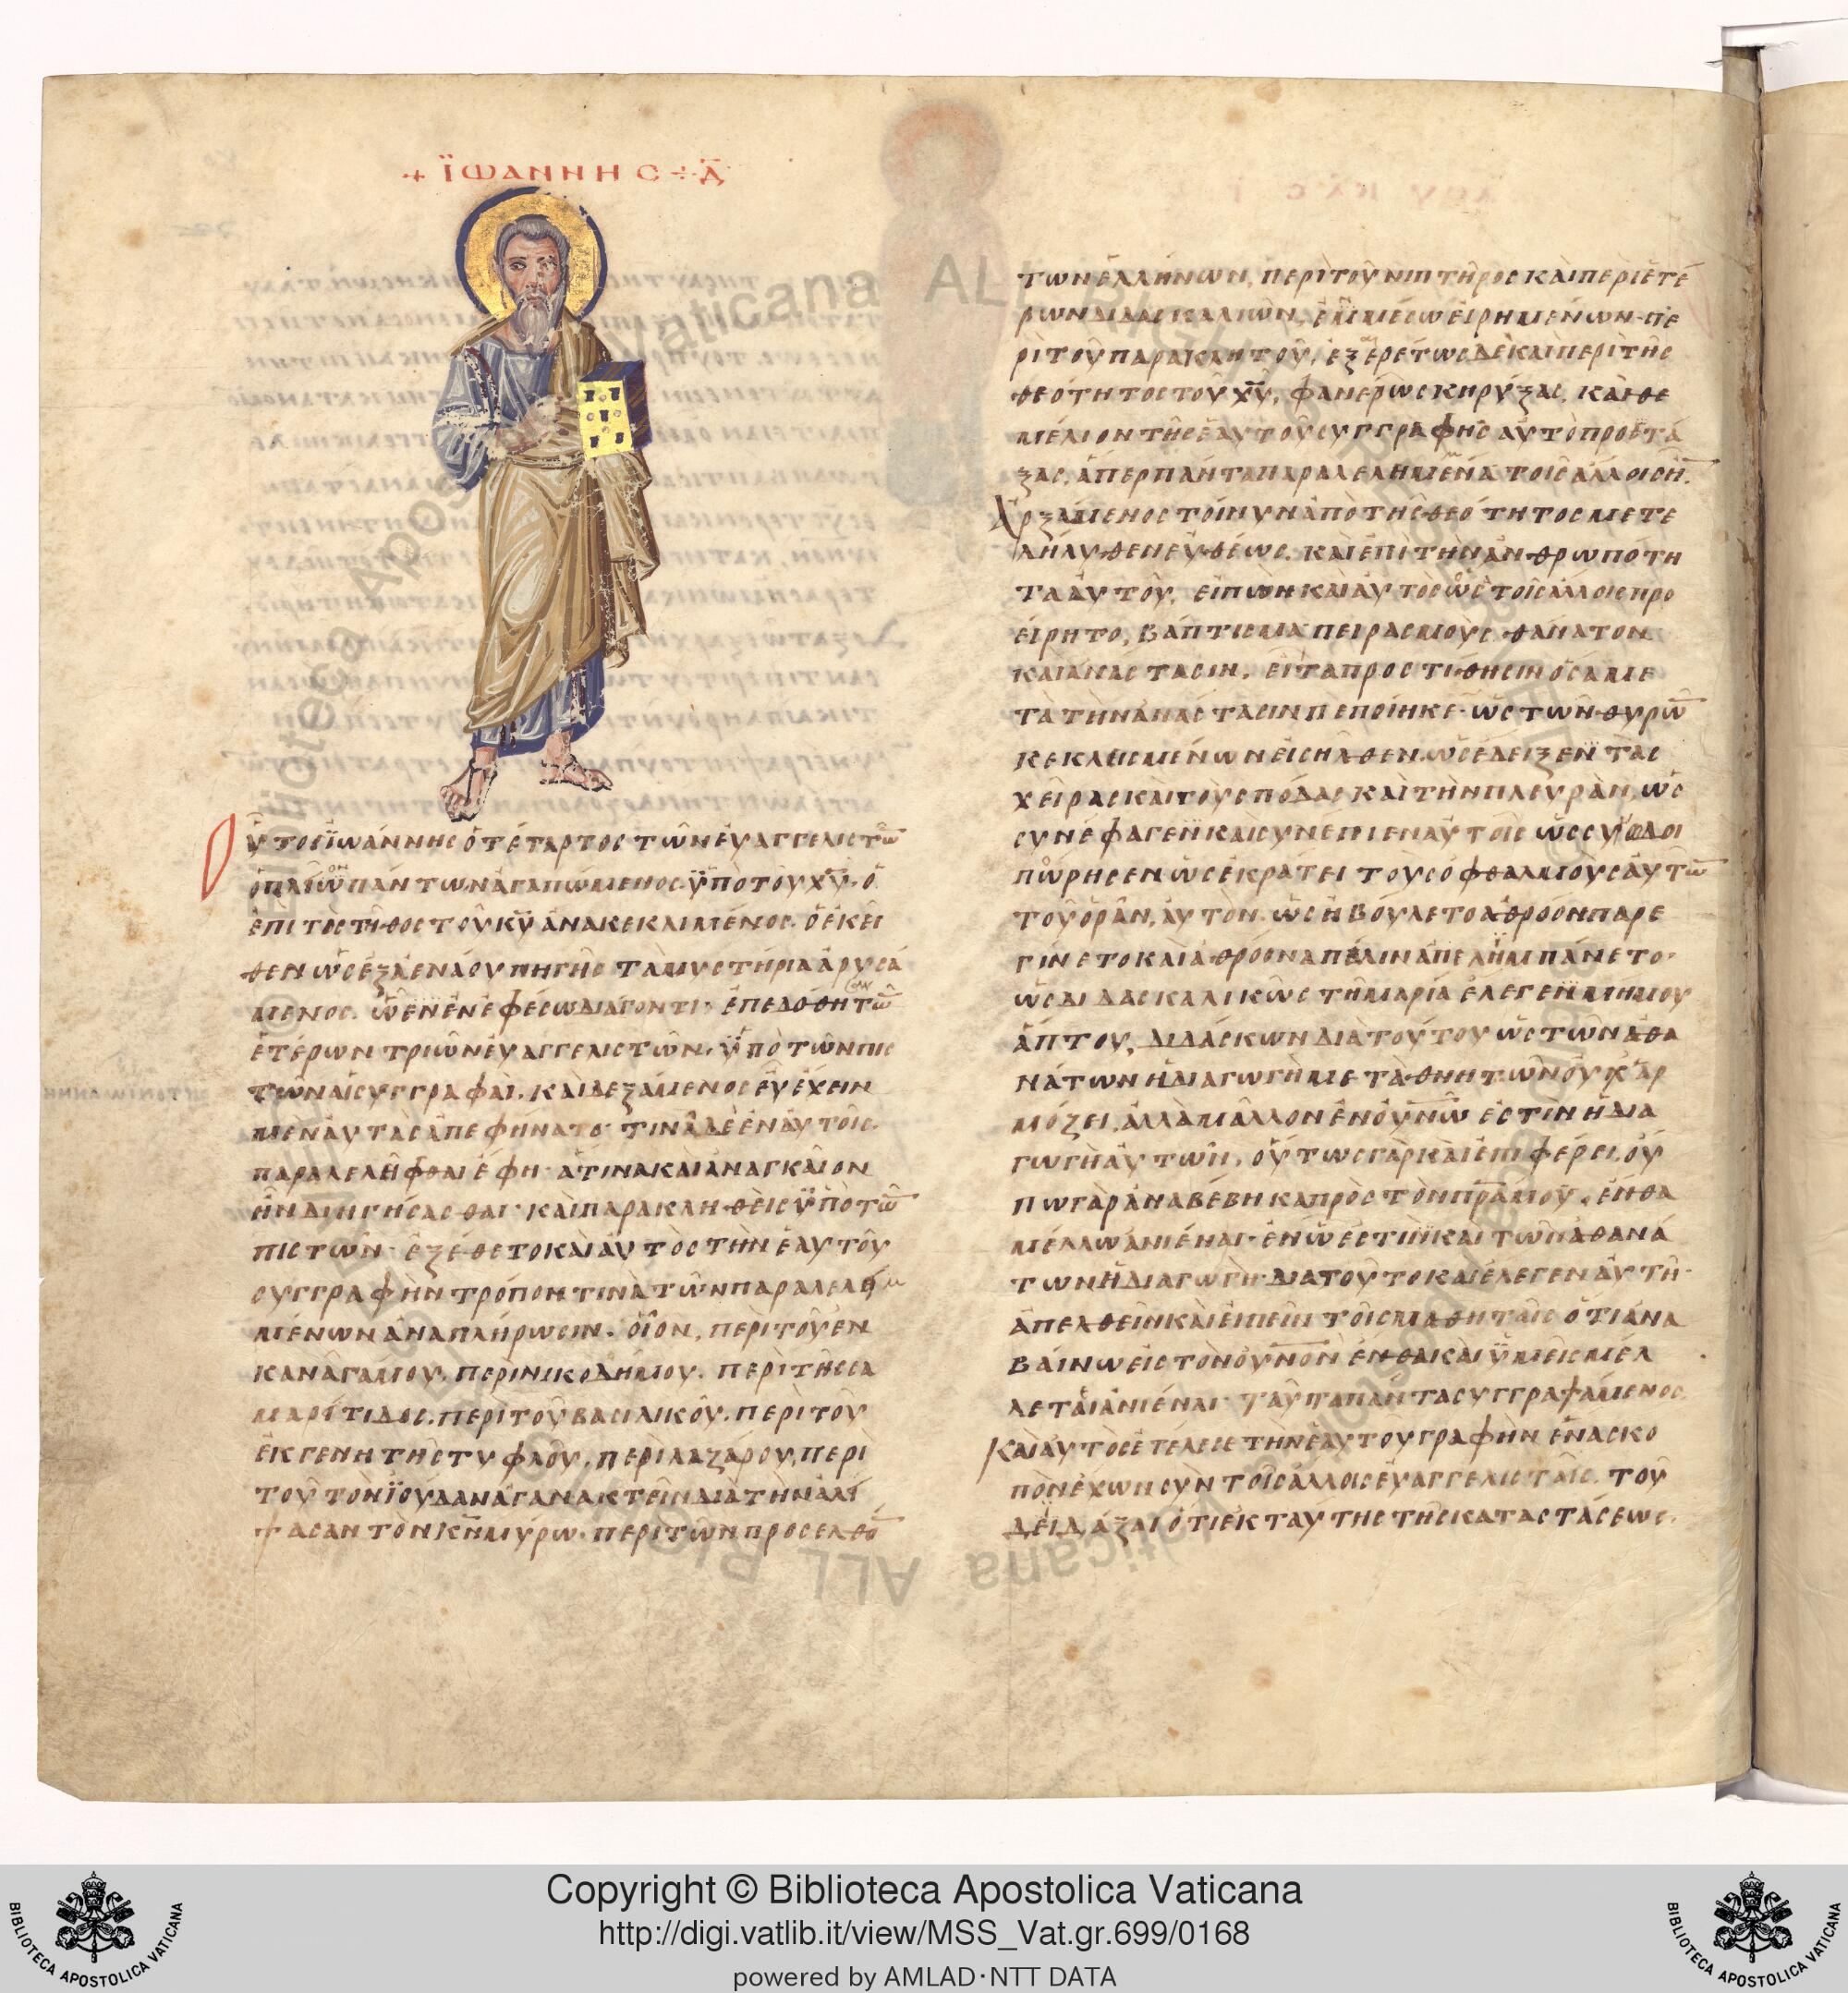 + ΪΩΑΝΝΗС ÷ Δ̅
Οὗτος Ϊωάννης ὁ τέταρτος τῶν ἐυαγγελιστῶ̅
ὁ πλεῖον πάντων ἀγαπώμενος ϋπὸ τοῦ χ̅υ̅· ὁ
ἐπὶ τὸ στῆθος τοῦ κ̅υ̅ ἀνακεκλιμένος. ὁ ἐκεῖ
θεν ὡς ἐξ ἀενάου πηγῆς τὰ μυστήρια ἀρυσά
μενος. ὧ ἐν ἐφέσω διάγοντι· ἐπεδόθησαν τῶ̅
ἑτέρων τριῶν ἐυαγγελιστῶν ϋπὸ τῶν πις
τῶν ἁι συγγραφὰι. καὶ δεξάμενος ἐῦ ἔχειν
μὲν ἀυτὰς ἀπεφήνατο· τινὰ δὲ ἐν ἀυτοῖς
παραλελεῖφθαι ἔφη· ἅτινα καὶ ἀναγκαῖον
ἦν διηγήσασθαι· καὶ παρακληθεὶς ϋπὸ τῶ̅
πιστῶν· ἐξέθετο καὶ ἀυτὸς τὴν ἑαυτοῦ
συγγραφὴν τρόπον τινὰ τῶν παραλελημ
μένων ἀναπλήρωσιν. ὁῖον, περὶ τοῦ ἐν
κανᾶ γάμου. περὶ νικοδήμου. περὶ τῆς σα
μαρίτιδος. περὶ τοῦ βασιλικοῦ. περὶ τοῦ
ἐκ γενητῆς τυφλοῦ. περὶ λαζάρου, περὶ
τοῦ τὸν Ϊούδαν ἀγανακτεῖν διὰ τὴν ἀλεί
ψασαν τὸν κ̅ν̅ μύρω. περὶ τῶν προσελθό̅
των ἑλλήνων, περὶ τοῦ νιπτῆρος καὶ περὶ ἑτέ
ρων διδασκαλιῶν, ἐμμέσω εἰρημένων· πε
ρὶ τοῦ παρακλήτου, ἐξερέτως δὲ καὶ περὶ τῆς
θεότητος τοῦ χ̅υ̅, φανερῶς κηρύξας, καὶ θε
μέλιον τῆς ἑαυτοῦ συγγραφῆς ἀυτὸ προτά
ξας, ἅπερ πάντα παραλελημένα τοῖς ἄλλοις ἦ̅.
Ἀρξάμενος τοίνυν ἀπὸ τῆς θεότητος μετε
λήλυθεν ἐυθέως. καὶ ἐπὶ τὴν ἀνθρωπότη
τα ἀυτοῦ, εἰπὼν καὶ ἀυτὸς ὡς τοῖς ἄλλοις προ
είρητο, βάπτισμα πειρασμοὺς θάνατον
καὶ ἀνάστασιν, εἶτα προστίθησιν ὅσα με
τὰ τὴν ἀνάστασιν πεποίηκε· ὡς τῶν θυρῶ̅
κεκλεισμένων εἰσῆλθεν. ὡς ἔδειξεν τὰς
χεῖρας καὶ τοὺς πόδας καὶ τὴν πλευρὰν, ὡς
συνέφαγεν καὶ συνέπιεν ἀυτοῖς ὡς συνοδοι
πώρησεν ὡς ἐκράτει τοὺς ὀφθαλμοὺς ἀυτῶ̅
τοῦ ὁρᾶν, ἀυτὸν. ὡς ἠβούλετο ἄθροον παρε
γίνετο καὶ ἄθροον πάλιν ἀπελίμπάνετο·
ὡς διδασκαλικῶς τῆ μαρία ἔλεγεν μή μου
ἅπτου, διδάσκων διὰ τούτου ὡς τῶν ἀθα
νάτων ἡ διαγωγὴ μετὰ θνητῶν ὀυκ ἁρ
μόζει, ἀλλὰ μᾶλλον ἐν ὀυ̅ν̅ῶ ἐστὶν ἡ δια
γωγὴ ἀυτῶν, ὁύτως γὰρ καὶ ἐπιφέρει, ὀύ
πω γὰρ ἀναβέβηκα πρὸς τὸν π̅ρ̅α μου, ἔνθα
μέλλω ἀνιέναι· ἐν ὧ ἐστὶν καὶ τῶν ἀθανά
των ἡ διαγωγὴ· διατοῦτο καὶ ἔλεγεν ἀυτῆ·
ἀπελθεῖν καὶ ἐιπεῖν τοῖς μαθηταῖς ὅτι ἀνα
βαίνω εἰς τὸν ὀυ̅ν̅ὸν ἔνθα καὶ ϋμεῖς μέλ
λεται ἀνιέναι· ταῦτα πάντα συγγραψάμενος
Καὶ ἀυτὸς ἐτέλεσε τὴν ἑαυτοῦ γραφὴν ἕνα σκο
πὸν ἔχων σὺν τοῖς ἄλλοις ἐυαγγελισταῖς. τοῦ
δεῖξαι ὅτι ἐκ ταύτης τῆς καταστάσεως
Copyright © Biblioteca Apostolica Vaticana
http://digi.vatlib.it/view/MSS_Vat.gr.699/0168
powered by AMLAD·NTT DATA
BIBLIOTECA APOSTOLICA VATICANA
BIBLIOTECA APOSTOLICA VATICANA